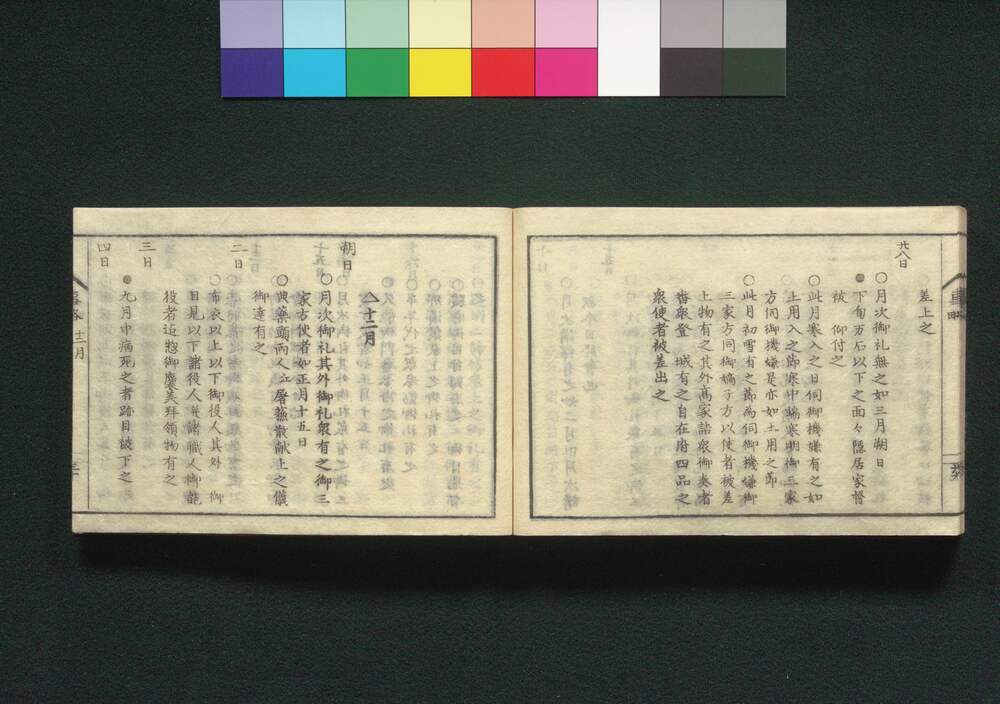 差上之
廿八日
○月次御礼無之如三月朔日
●下旬万石以下之面々隠居家督
被 仰付之
○此月寒入之日伺御機嫌有之如
土用入之節寒中端寒明御三家
方伺御機嫌是亦如土用之節
○此月初雪有之節為伺御機嫌御
三家方同御嫡子方以使者被差
上物有之其外高家詰衆御奏者
番衆登 城有之自在府四品之
衆使者被差出之
十二月
朔日
○月次御礼其外御礼衆有之御三
家方使者如正月十五日
○典薬頭両人立屠蘇散献上之儀
御達有之
二日
○布衣以上以下御役人其外 御
目見以下諸役人并諸職人御能
役者迄惣御褒美拝領物有之
三日
四日
●九月中病死之者跡目被下之
十二月